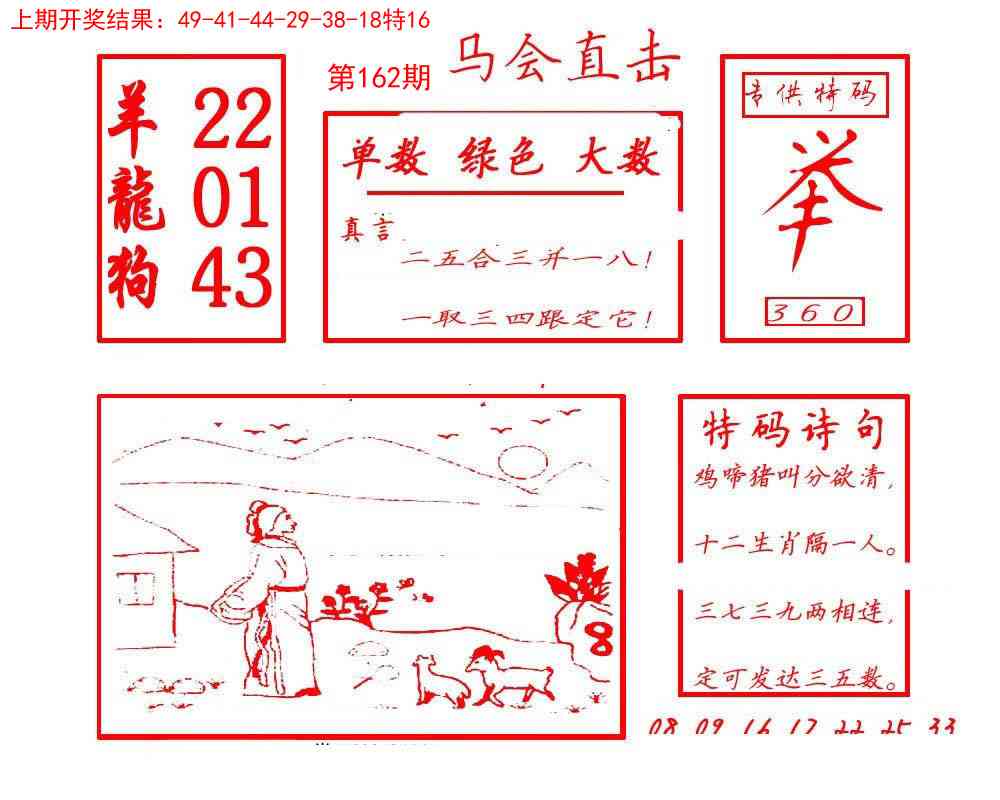 上期开奖结果：49-41-44-29-38-18特16
第162期 马会直击
羊 22
龍 01
狗 43
单数 绿色 大数
真言
二五合三并一八！
一取三四跟定它！
专供特码
举
360
8
特码诗句
鸡啼猪叫分欲清，
十二生肖隔一人。
三七三九两相连，
定可发达三五数。
08 09 16 17 22 25 33